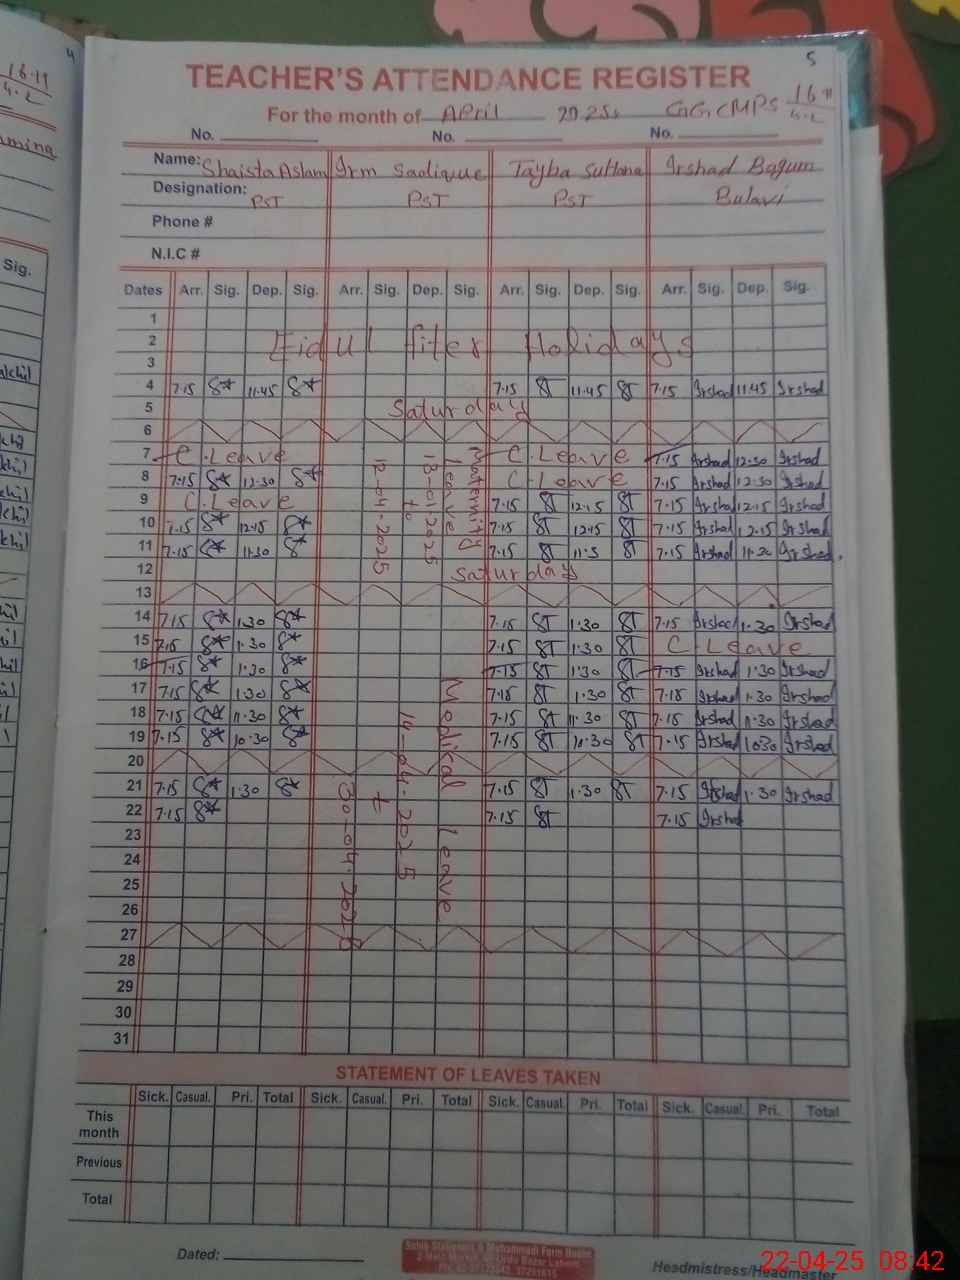 5
TEACHER'S ATTENDANCE REGISTER
For the month of April 2025 GGCMPS 16
4-L
No. No. No.
Name: Shaista Aslam Irm Sadique Tayba Sultana Irshad Bagum
Designation: PST PST PST Bulavi
Phone #
N.I.C #
Sig.
Dates Arr. Sig. Dep. Sig. Arr. Sig. Dep. Sig. Arr. Sig. Dep. Sig. Arr. Sig. Dep. Sig.
1
2 Eid ul fiter Holidays
3
4 7.15 11.45 7.15 ST 11.45 ST 7.15 Irshad 11.45 Irshad
5 Saturday
6
7 C.Leave C.Leave 7.15 Irshad 12.30 Irshad
8 7.15 12.30 C.Leave 7.15 Irshad 12.30 Irshad
9 C.Leave 7.15 ST 12.15 ST 7.15 Irshad 12.15 Irshad
10 7.15 12.15 7.15 ST 12.15 ST 7.15 Irshad 12.15 Irshad
11 7.15 11.30 7.15 ST 11.3 ST 7.15 Irshad 11.30 Irshad
12 Saturday
Maternity Leave
13-01-2025
to
12-04-2025
13
14 7.15 1.30 7.15 ST 1.30 ST 7.15 Irshad 1.30 Irshad
15 7.15 1.30 7.15 ST 1.30 ST C.Leave
16 7.15 1.30 7.15 ST 1.30 ST 7.15 Irshad 1.30 Irshad
17 7.15 1.30 7.15 ST 1.30 ST 7.15 Irshad 1.30 Irshad
18 7.15 11.30 7.15 ST 11.30 ST 7.15 Irshad 11.30 Irshad
19 7.15 10.30 7.15 ST 10.30 ST 7.15 Irshad 10.30 Irshad
20
21 7.15 1.30 7.15 ST 1.30 ST 7.15 Irshad 1.30 Irshad
22 7.15 7.15 ST 7.15 Irshad
Medikal Leave
14-04-2025
t
30-04-2025
23
24
25
26
27
28
29
30
31
STATEMENT OF LEAVES TAKEN
Sick. Casual. Pri. Total Sick. Casual. Pri. Total Sick. Casual. Pri. Total Sick. Casual. Pri. Total
This month
Previous
Total
Dated:
Headmistress/Headmaster
22-04-25 08:42